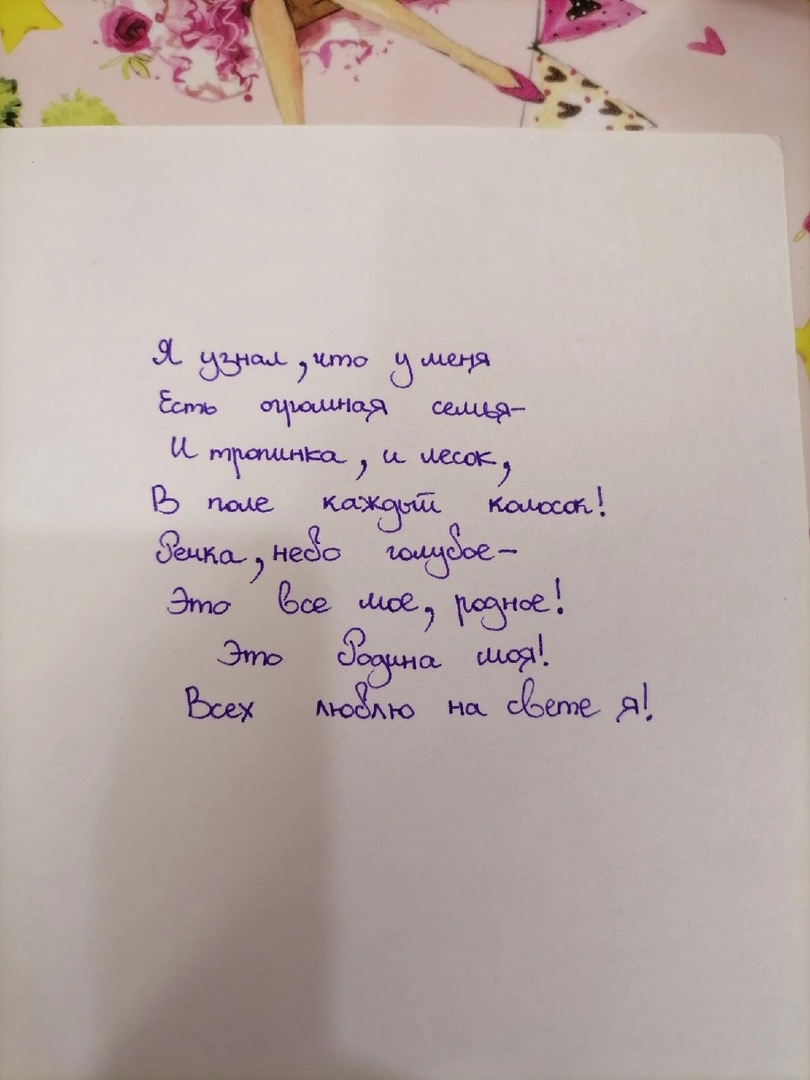 Я узнал, что у меня
Есть огромная семья-
И тропинка, и лесок,
В поле каждый колосок!
Речка, небо голубое-
Это все мое, родное!
Это Родина моя!
Всех люблю на свете я!